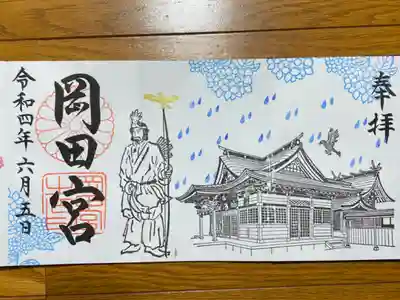 奉拝
岡田宮
令和四年六月五日